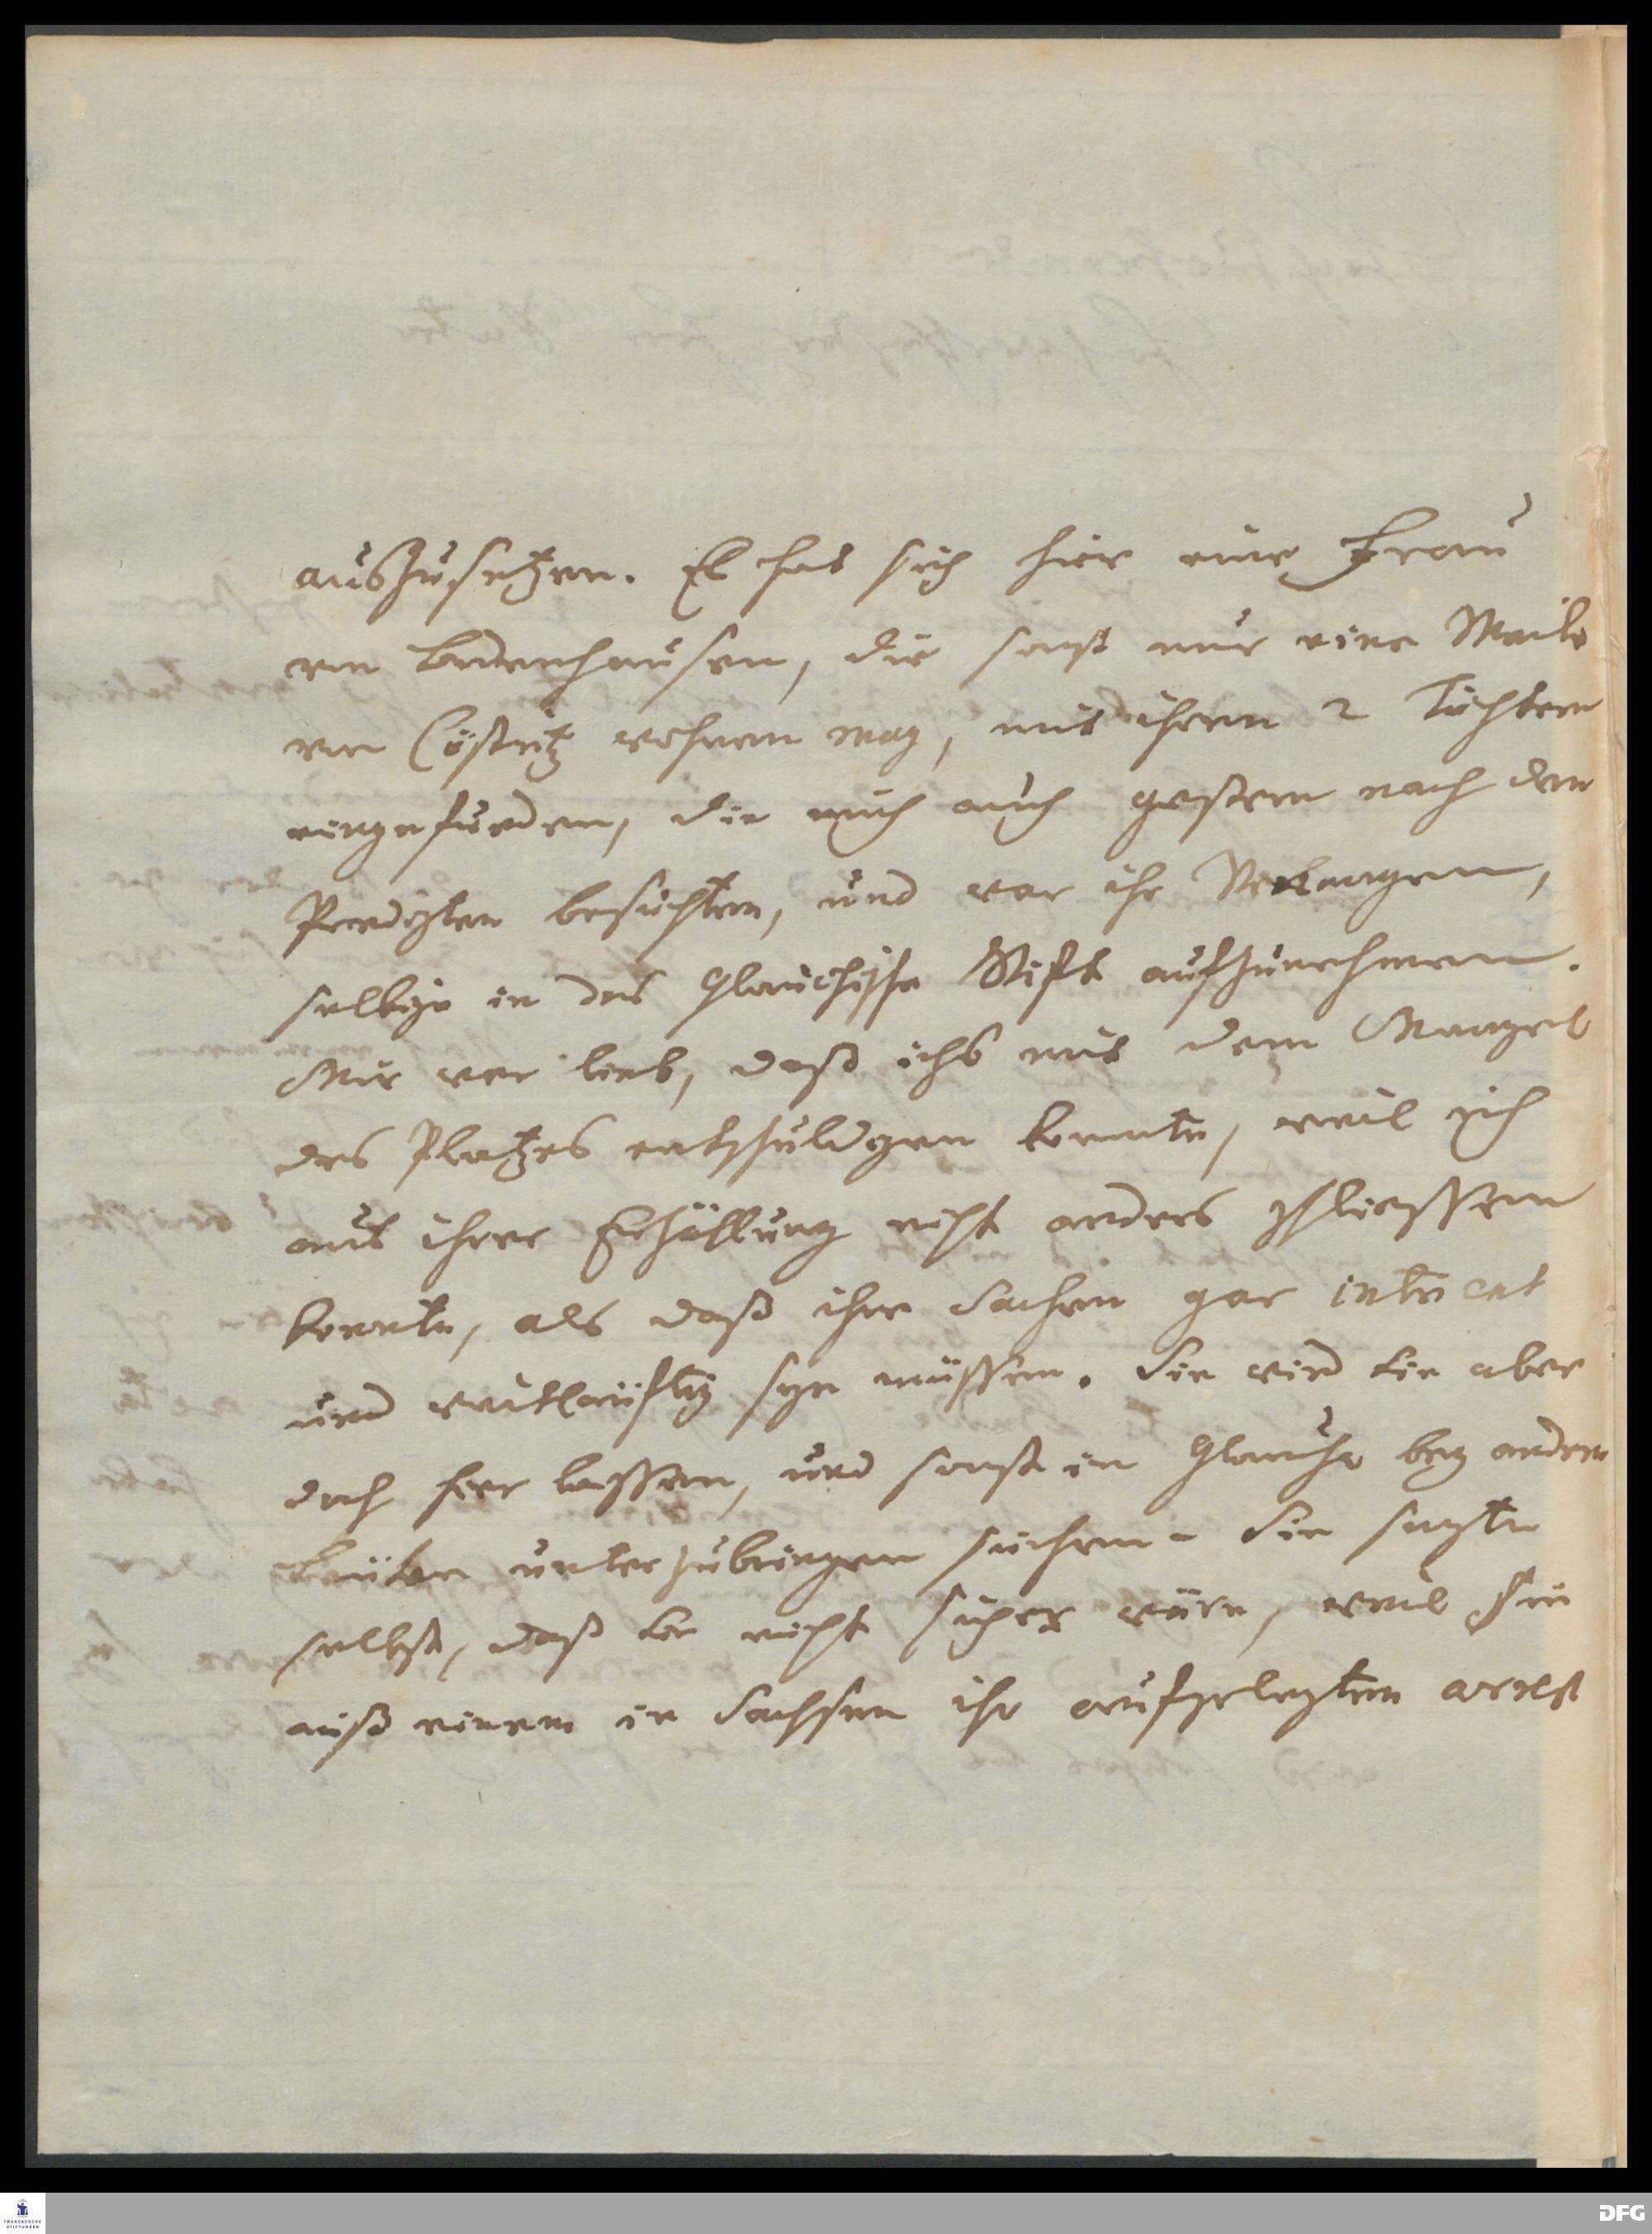 auszusetzen. Es hat sich hier eine Frau
von Bodenhausen, die sonst nur eine Meile
von Cöstritz wohnen mag, mit ihren 2 Töchtern
eingefunden, die mich auch gestern nach den
Predigten besuchten, und war ihr Verlangen,
selbige in das Glauchische Stift aufzunehmen.
Mir war lieb, daß ichs mit dem Mangel
des Platzes entschuldigen konnte, weil ich
aus ihrer Erzählung nicht anders schliessen
konnte, als daß ihre Sachen gar intricat
und weitläufftig seyn müssen. Sie wird sie aber
doch hier lassen, und sonst in Glaucha bey andern
Leuten unterzubringen suchen. Sie sagte
selbst, daß sie nicht sicher wäre, weil sie
auß einem in Sachsen ihr aufgelegten arrest
FRANCKESCHE
STIFTUNGEN
DFG